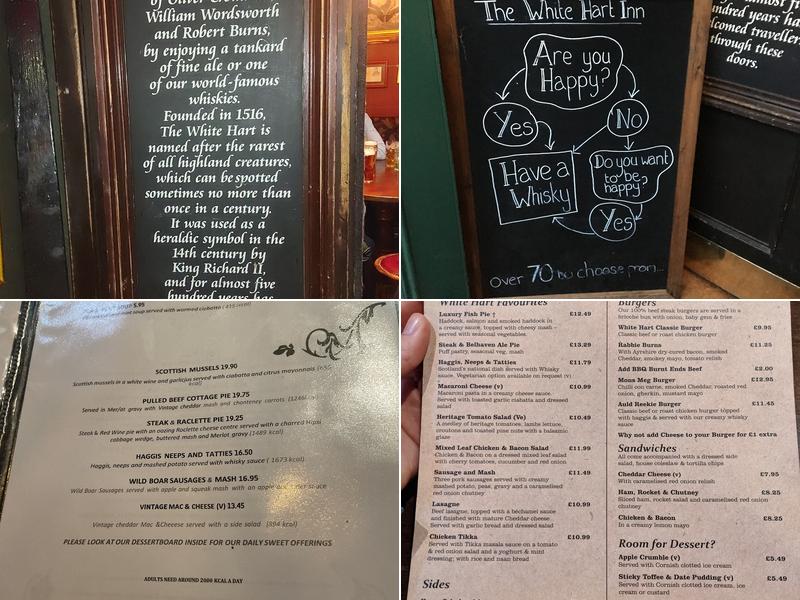 of Oliver
William Wordsworth
and Robert Burns,
by enjoying a tankard
of fine ale or one
of our world-famous
whiskies.
Founded in 1516,
The White Hart is
named after the rarest
of all highland creatures,
which can be spotted
sometimes no more than
once in a century.
It was used as a
heraldic symbol in the
14th century by
King Richard II,
and for almost five
hundred years has
The White Hart Inn
Are you
Happy?
Yes
No
Have a
Whisky
Do you want
to be
happy?
Yes
over 70 to choose from...
hundred years ha
lcomed traveller
through these
doors.
5.95
soup served with warmed ciabatta
SCOTTISH MUSSELS 19.90
Scottish mussels in a white wine and garlic jus served with ciabatta and citrus mayonnais
PULLED BEEF COTTAGE PIE 19.75
Served in Merlot gravy with Vintage cheddar mash and chanteney carrots
STEAK & RACLETTE PIE 19.25
Steak & Red Wine pie with an oozing Raclette cheese centre served with a charred Hispi
cabbage wedge, buttered mash and Merlot gravy (1489 kcal)
HAGGIS NEEPS AND TATTIES 16.50
Haggis, neeps and mashed potato served with whisky sauce ( 1673 kcal)
WILD BOAR SAUSAGES & MASH 16.95
Wild Boar Sausages served with apple and squash mash with an apple
VINTAGE MAC & CHEESE (V) 13.45
Vintage cheddar Mac &Cheeese served with a side salad (894 kcal)
PLEASE LOOK AT OUR DESSERTBOARD INSIDE FOR OUR DAILY SWEET OFFERINGS
ADULTS NEED AROUND 2000 KCAL A DAY
White Hart Favourites
Luxury Fish Pie † £12.49
Haddock, salmon and smoked haddock in
a creamy sauce, topped with cheesy mash -
served with seasonal vegetables.
Steak & Belhaven Ale Pie £13.29
Puff pastry, seasonal veg, mash
Haggis, Neeps & Tatties £11.79
Scotland's national dish served with Whisky
sauce. Vegetarian option available on request (v)
Macaroni Cheese (v) £10.99
Macaroni pasta in a creamy cheese sauce.
Served with toasted garlic ciabatta and dressed
salad
Heritage Tomato Salad (Ve) £10.49
A medley of heritage tomatoes, lambs lettuce,
croutons and toasted pine nuts with a balsamic
glaze
Mixed Leaf Chicken & Bacon Salad £11.99
Chicken & Bacon on a dressed mixed leaf salad
with cherry tomatoes, cucumber and red onion
Sausage and Mash £11.49
Three pork sausages served with creamy
mashed potato, peas, gravy and a caramelised
red onion chutney
Lasagne £10.99
Beef lasagne, topped with a béchamel sauce
and finished with mature Cheddar cheese.
Served with garlic bread and dressed salad
Chicken Tikka £10.99
Served with Tikka masala sauce on a tomato
& red onion salad and a yoghurt & mint
dressing; with rice and naan bread
Sides
Burgers
Our 100% beef steak burgers are served in a
brioche bun with onion, baby gem & fries
White Hart Classic Burger £9.95
Classic beef or roast chicken burger
Rabbie Burns £11.25
With Ayrshire dry-cured bacon, smoked
Cheddar, smokey mayo, tomato relish
Add BBQ Burnt Ends Beef £2.00
Mons Meg Burger £12.95
Chilli con carne, smoked Cheddar, roasted red
onion, gherkin, mustard mayo
Auld Reekie Burger £11.45
Classic beef or roast chicken burger topped
with haggis & served with our creamy whisky
sauce
Why not add Cheese to your Burger for £1 extra
Sandwiches
All come accompanied with a dressed side
salad, house coleslaw & tortilla chips
Cheddar Cheese (v) £7.95
With caramelised red onion relish
Ham, Rocket & Chutney £8.25
Sliced ham, rocket salad and caramelised red onion
chutney
Chicken & Bacon £8.25
In a creamy lemon mayo
Room for Dessert?
Apple Crumble (v) £5.49
Served with Cornish clotted ice cream
Sticky Toffee & Date Pudding (v) £5.49
Served with Cornish clotted ice cream, ice
cream or custard